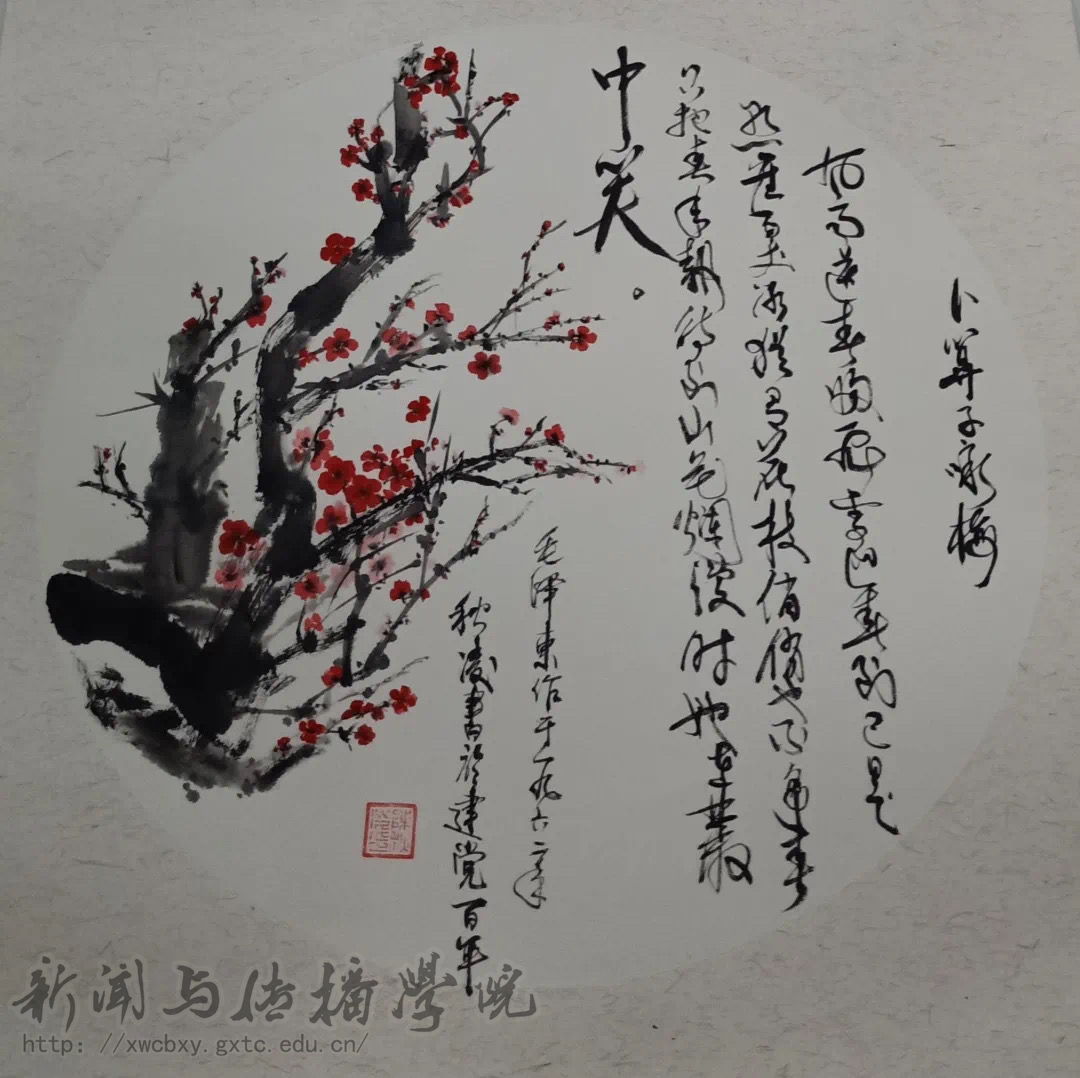 卜算子咏梅
风雨送春归飞雪迎春到已是
悬崖百丈冰犹有花枝俏俏也不争春
只把春来報待到山花爛漫时她在叢
中笑。
毛泽東作于一九六二年
秋凌書於建党百年
新闻与传播学院
http://xwcbxy.gxtc.edu.cn/